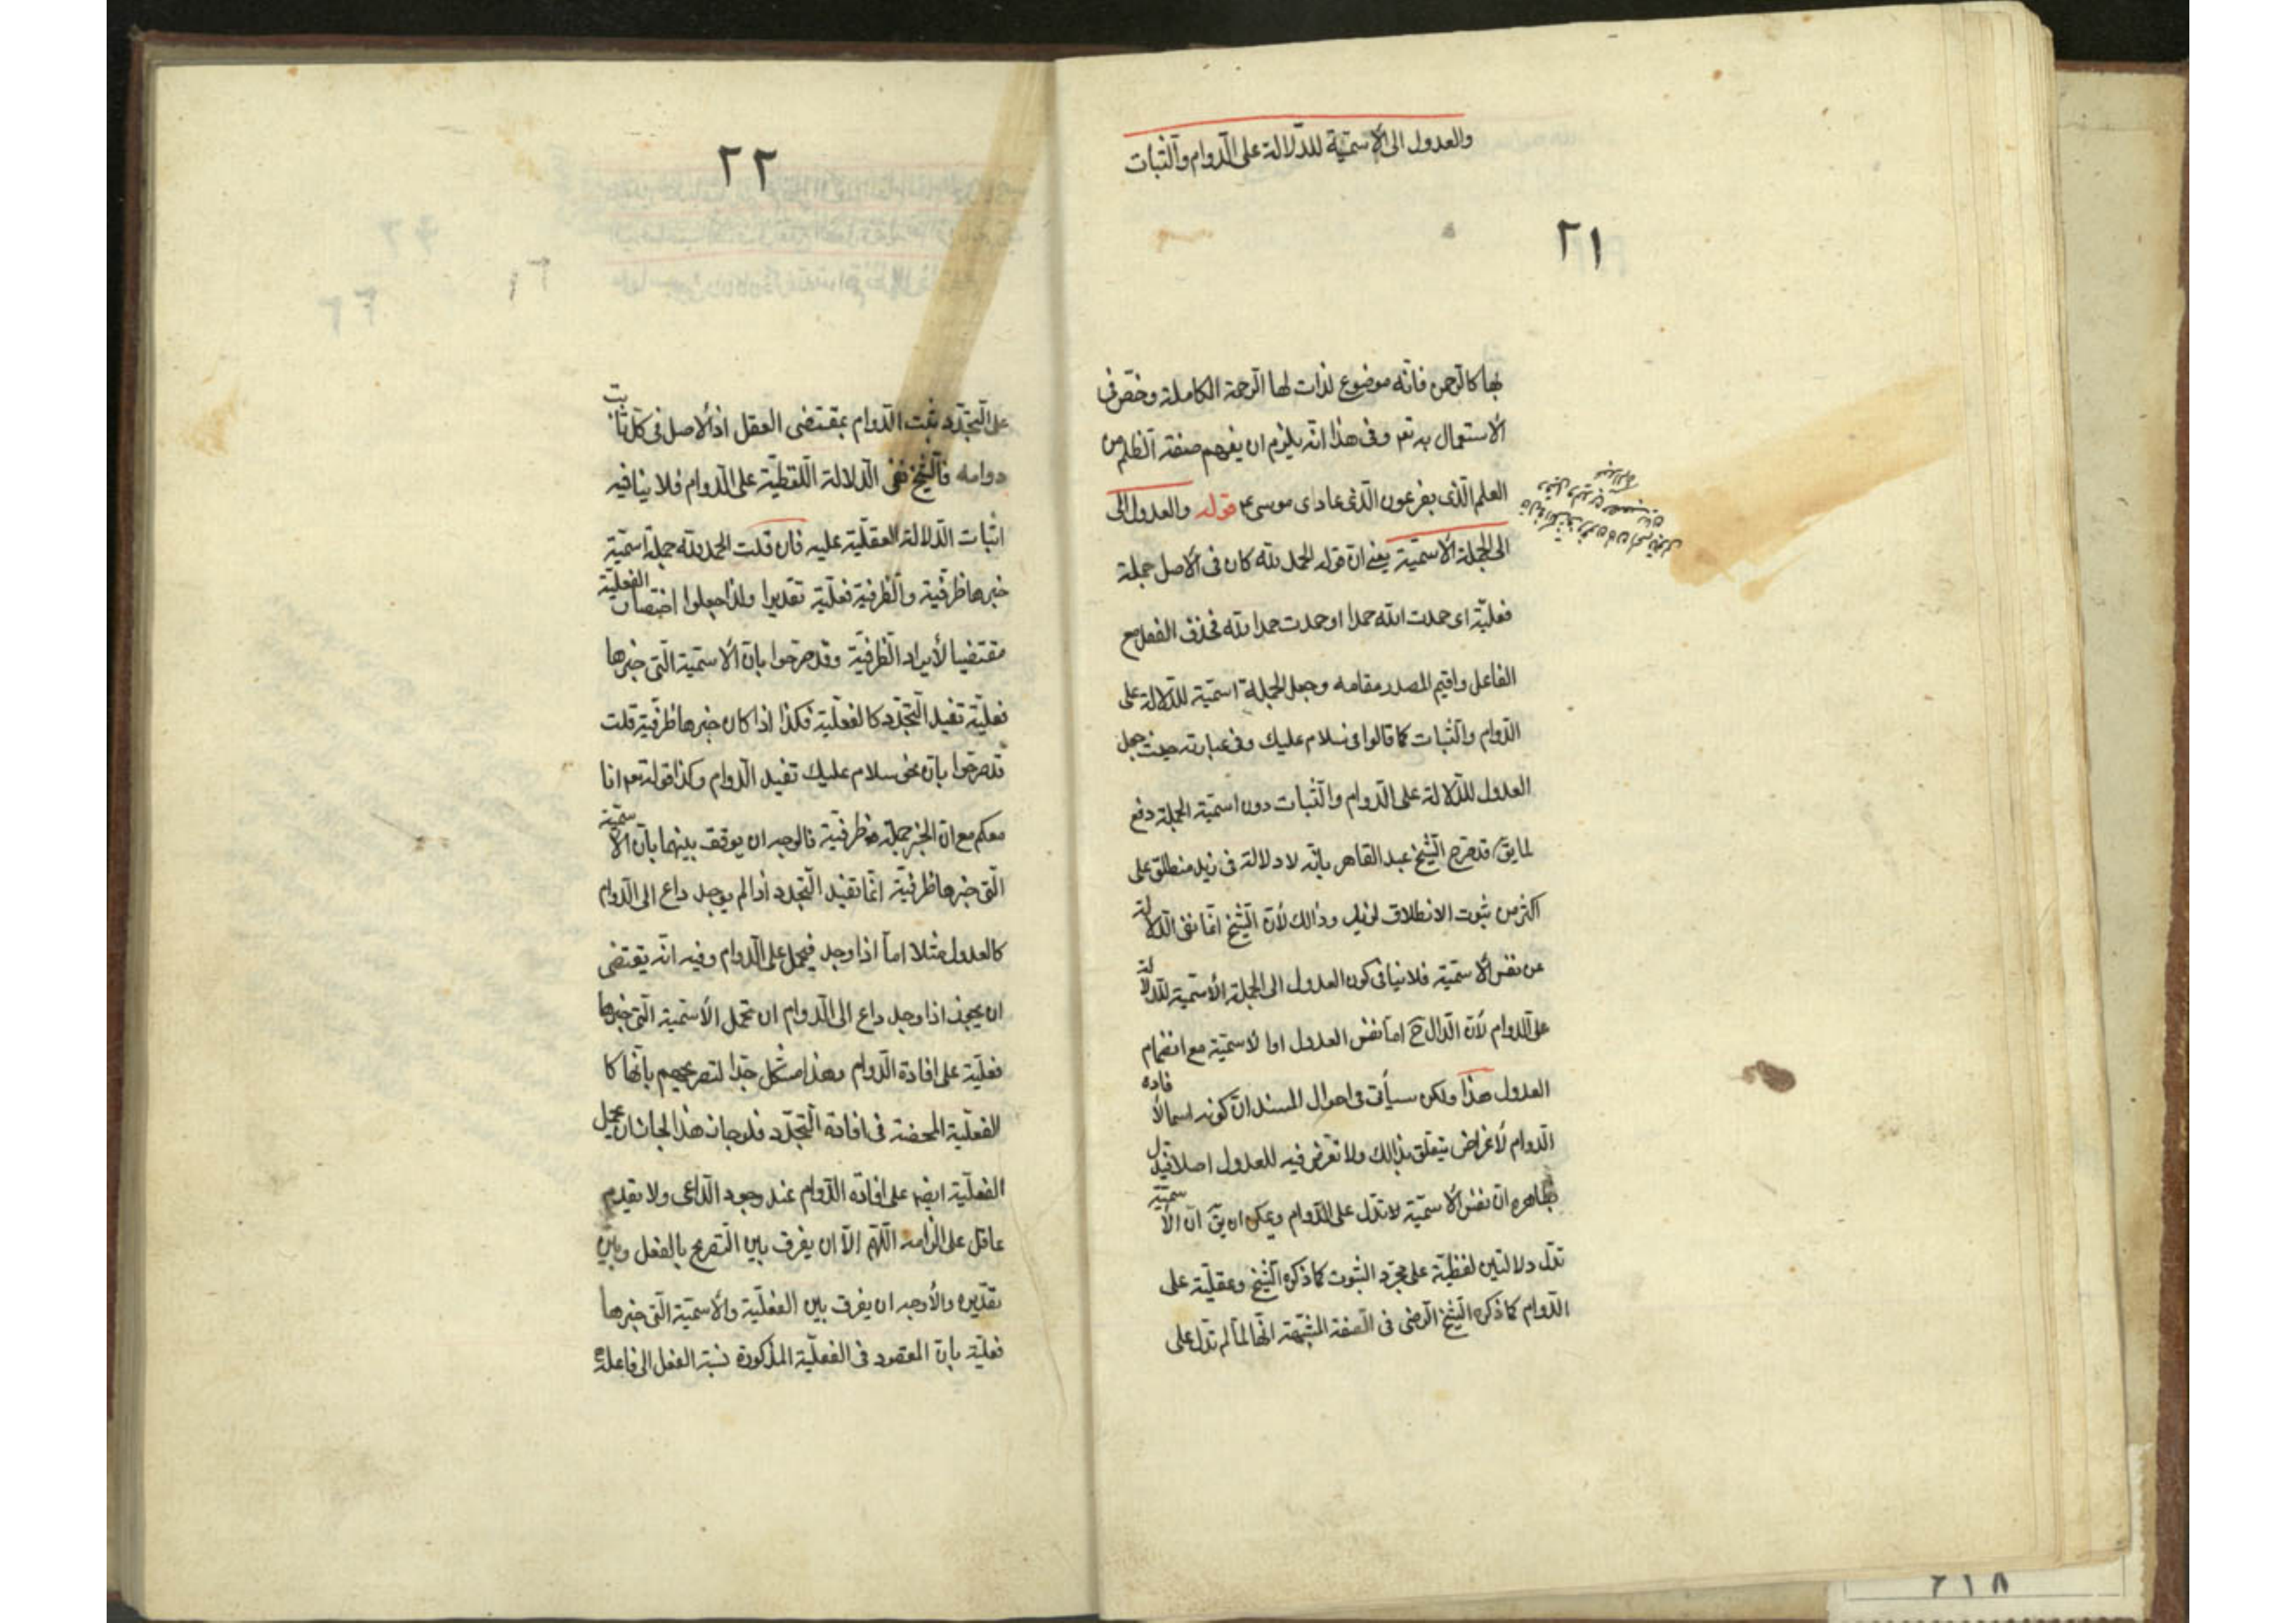 والعدول الى الاسمية للدلالة على الدوام والثبات
٢١
بها كالرحمن فانه موضوع لذات لها الرحمة الكاملة وخص فى
الاستعمال به تعـ وفى هذا انه يلزم ان يفهم صفة الظلم من
العلم الذى بفرعون الذى عادى موسى ع قوله والعدول الى
الى الجملة الاسمية يعنى ان قوله الحمد لله كان فى الاصل جملة
فعلية اى حمدت الله حمدا او حمدت حمدا لله فحذف الفعل مع
الفاعل واقيم المصدر مقامه وجعل الجملة اسمية للدلالة على
الدوام والثبات كما قالوا فى سلام عليك وفى عبارته حيث جعل
العدول للدلالة على الدوام والثبات دون اسمية الجملة دفع
لما يق قد صرح الشيخ عبد القاهر بانه لا دلالة فى زيد منطلق على
اكثر من ثبوت الانطلاق لزيد وذالك لأن الشيخ انما نفى الدلالة
عن نفس الاسمية فلا ينافى كون العدول الى الجملة الأسمية للدلالة
على الدوام لأن الدال ح اما نفس العدول او الاسمية مع انضمام
العدول هذا ولكن سيأتى فى احوال المسند ان كونه اسما لافاده
الدوام لأغراض يتعلق بذالك ولا تعرض فيه للعدول اصلا فيدل
بظاهره ان نفس الأسمية لا تدل على الدوام ويمكن ان يق ان الاسمية
تدل دلالتين لفظية على مجرد الثبوت كما ذكره الشيخ وعقلية على
الدوام كما ذكره الشيخ الرضى فى الصفة المشبهة انها لما لم تدل على
٢٢
على التجدد ثبت الدوام بمقتضى العقل اذ الاصل فى كل ثابت
دوامه فالشيخ نفى الدلالة اللفظية على الدوام فلا ينافيه
اثبات الدلالة العقلية عليه فان قلت الحمد لله جملة اسمية
خبرها ظرفية والظرفية فعلية تقديرا ولذا جعلوا اختصار الفعلية
مقتضيا لأيراد الظرفية وقد صرحوا بان الاسمية التى خبرها
فعلية تفيد التجدد كالفعلية فكذا اذا كان خبرها ظرفية قلت
قد صرحوا بان نحو سلام عليك تفيد الدوام وكذا قوله تعـ انا
معكم مع ان الخبر جملة ظرفية فالوجه ان يوفق بينهما بان الاسمية
التى خبرها ظرفية انما تفيد التجدد اذا لم يوجد داع الى الدوام
كالعدول مثلا اما اذا وجد فيحمل على الدوام وفيه انه يقتضى
ان يجوز اذا وجد داع الى الدوام ان تحمل الأسمية التى خبرها
فعلية على افادة الدوام وهذا مشكل جدا لتصريحهم بانها كا
الفعلية المحضة فى افادة التجدد فلو جاز هذا لجاز ان يحمل
الفعلية ايضا على افاده الدوام عند وجود الداعى ولا يقدم
عاقل على التزامه اللهم الا ان يفرق بين التصريح بالفعل وبين
تقديره والأوجه ان يفرق بين الفعلية والاسمية التى خبرها
فعلية بان المقصود فى الفعلية المذكورة نسبة الفعل الى فاعله
٢١٨